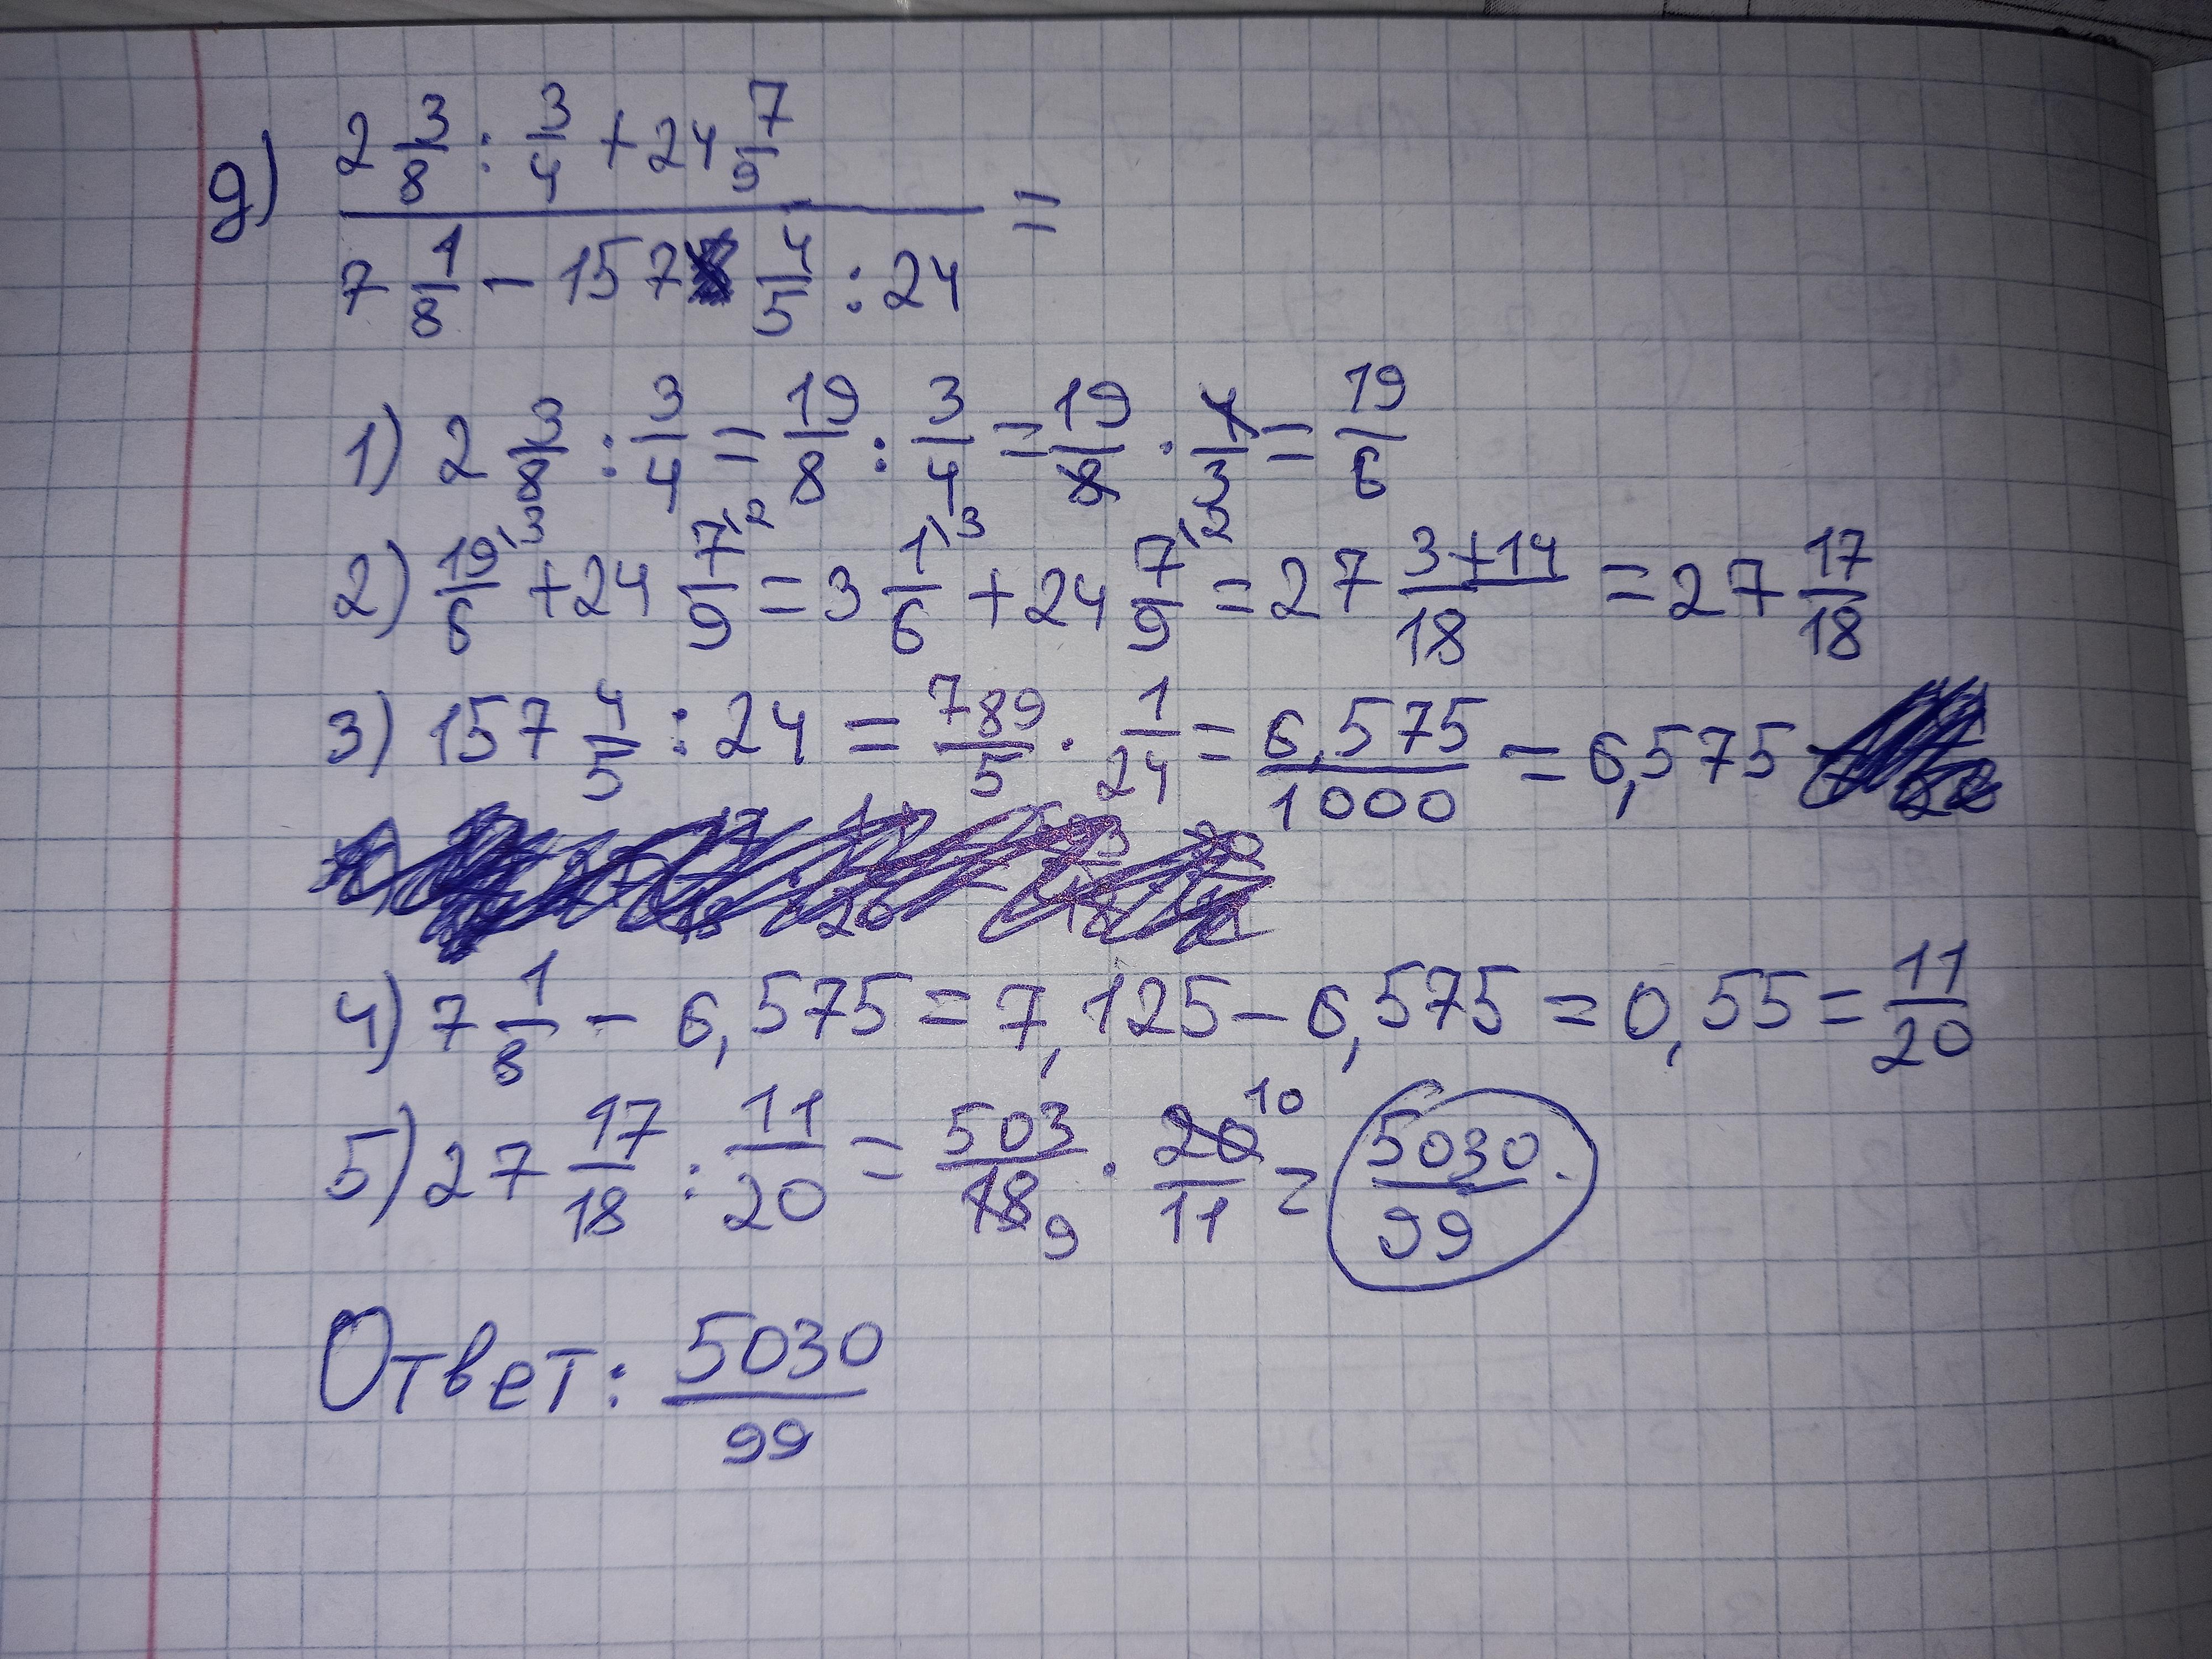 д) (2 3/8 : 3/4 + 24 7/9) / (7 1/8 - 157 4/5 : 24) =
1) 2 3/8 : 3/4 = 19/8 : 3/4 = 19/8 · 4/3 = 19/6
2) 19\3/6 + 24 7\2/9 = 3 1\3/6 + 24 7\2/9 = 27 3+14/18 = 27 17/18
3) 157 4/5 : 24 = 789/5 · 1/24 = 6,575/1000 = 6,575
4) 7 1/8 - 6,575 = 7,125 - 6,575 = 0,55 = 11/20
5) 27 17/18 : 11/20 = 503/18 9 · 20 10/11 = 5030/99.
Ответ: 5030/99